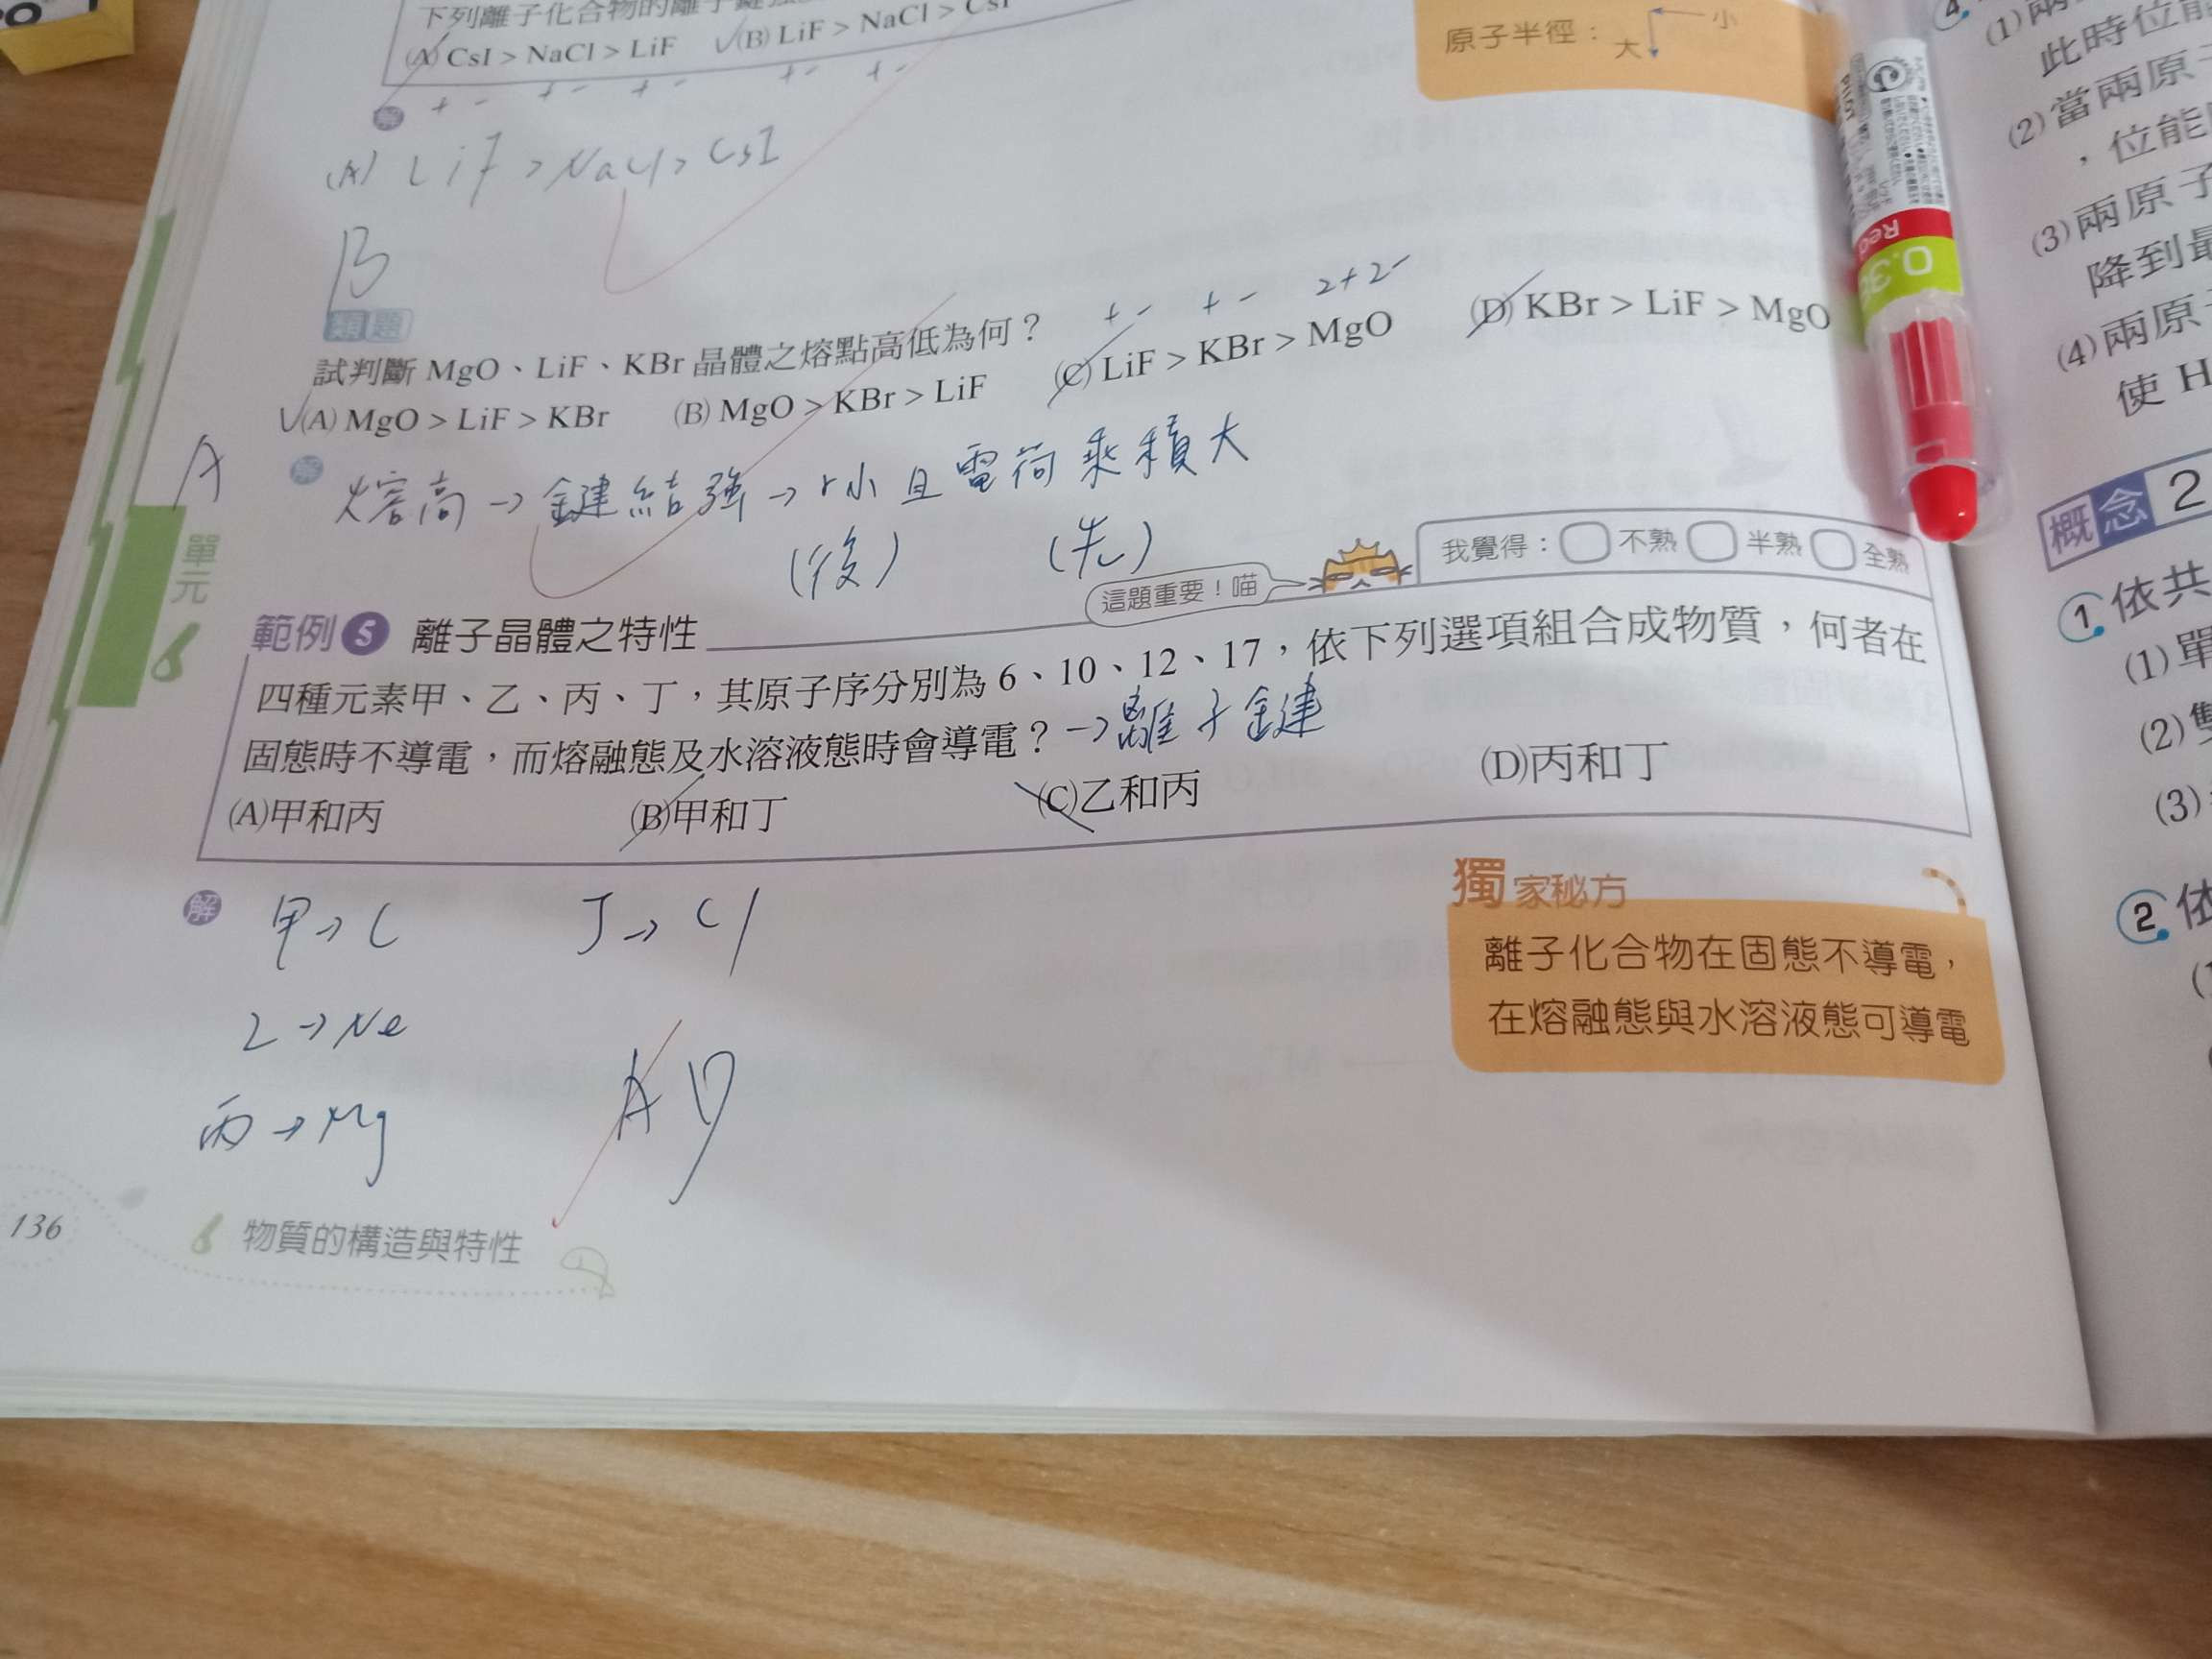 下列離子化合物的離子鍵
(A) CsI > NaCl > LiF (B) LiF > NaCl > CsI
+ - + - + - + - + -
解
(A) LiF > NaCl > CsI
B
原子半徑：大 小
類題
試判斷 MgO、LiF、KBr 晶體之熔點高低為何？
+ - + - 2+2-
(A) MgO > LiF > KBr (B) MgO > KBr > LiF (C) LiF > KBr > MgO (D) KBr > LiF > MgO
A
解 熔高→鍵結強→r小且電荷乘積大
(後) (先)
單元 6
這題重要！喵
我覺得：不熟 半熟 全熟
範例 5 離子晶體之特性
四種元素甲、乙、丙、丁，其原子序分別為 6、10、12、17，依下列選項組合成物質，何者在
固態時不導電，而熔融態及水溶液態時會導電？→離子鍵
(A)甲和丙 (B)甲和丁 (C)乙和丙 (D)丙和丁
解 甲→C 丁→Cl
乙→Ne
丙→Mg
A D
獨家秘方
離子化合物在固態不導電，
在熔融態與水溶液態可導電
136
6 物質的構造與特性
Red
0.38
4.
(1)兩
此時位能
(2)當兩原
，位能
(3)兩原子
降到最
(4)兩原
使 H
概念 2
1 依共
(1)單
(2)雙
(3)
2 依